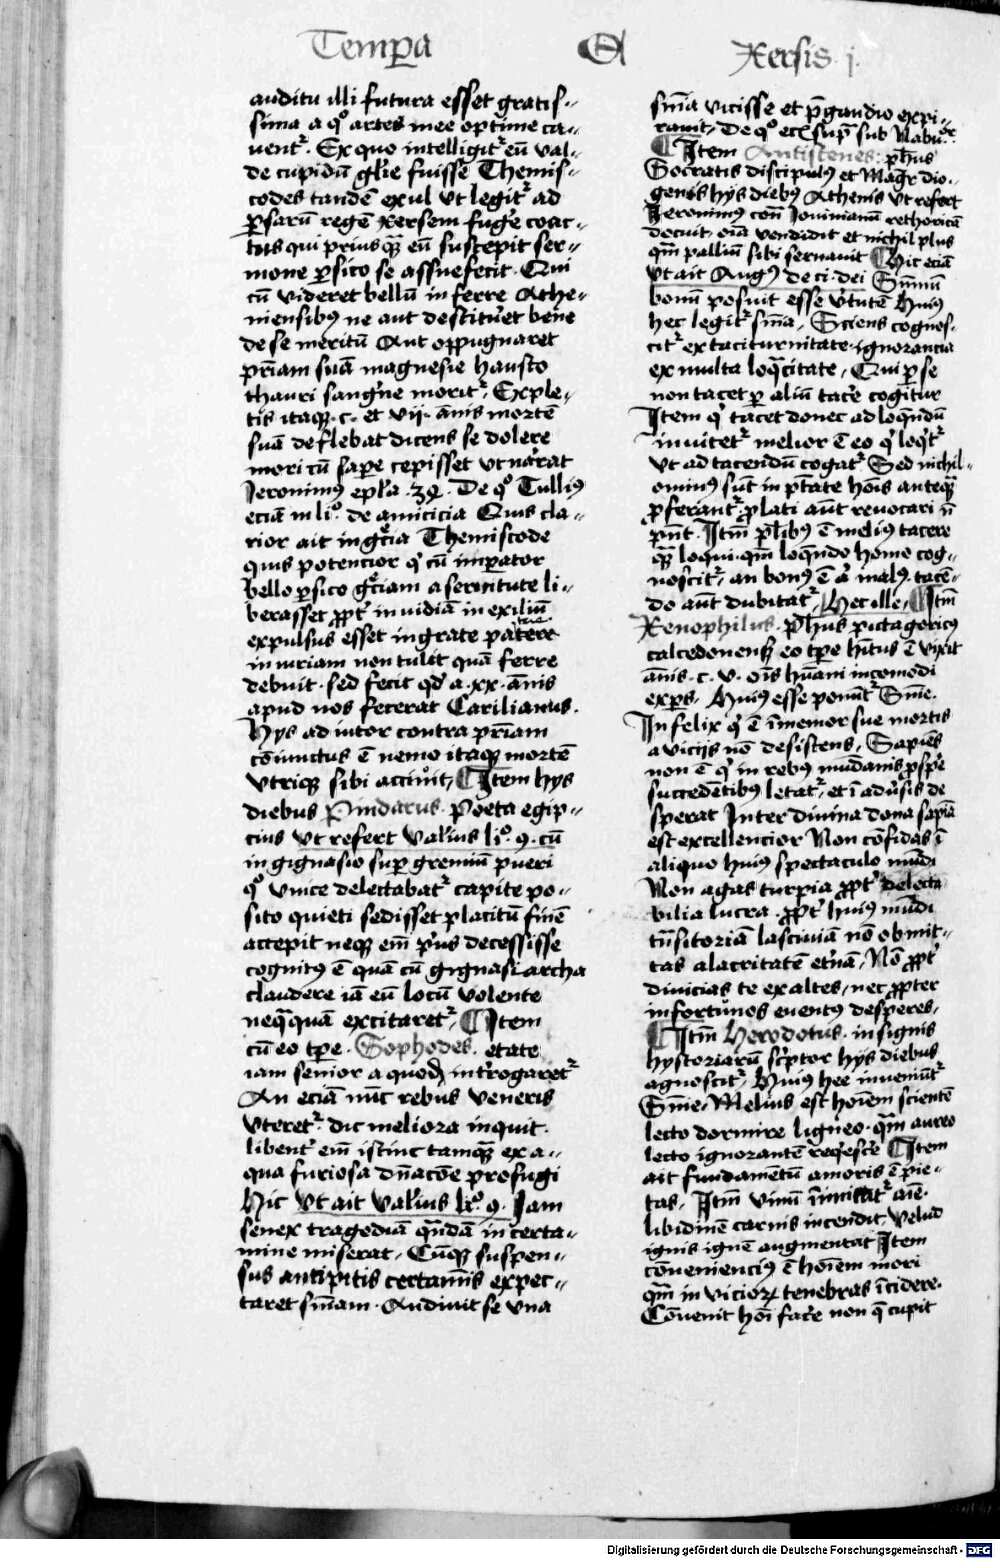 Temp̲a
Xersis · j ·
auditu illi futura esset gratis-
sima a qͦ artes mee optime ca-
uentᷣ. Ex quo intelligitᷣ eū val-
de cupidū glīe fuisse Themis-
codes tandē exul vt legitᷣ ad
ꝑsarū regē xersem fuge coac-
tus qui priusqꝫ eū suscepit ser-
mone ꝑsico se assuefecit · Qui
cū videret bellū inferre Athe-
niensibꝯ ne aut destitueret bene
de se meritū Aut oppugnaret
pr̄iam suā magnesie hausto
thauri sangne moritᷣ, Exple-
tis itaqꝫ · c · et vij · annis mortē
suā deflebat dicens se dolere
mori cū saꝑe cepisset vt narat
Jeronimꝯ epl̄a · 32 · De qͦ Tulliꝯ
eciā in liͦ. de amicicia Quis cla-
rior ait in gc̄ia Themiscode
quis potencior qͥ cū imꝑator
bello ꝑsico gc̄iam a seruitute li-
berasset ꝓpt inuidiā in exiliū
expulsus esset ingrate patrie
iniuriam non tulit quā ferre
debuit · sed fecit qd̄ a · xx · annis
apud nos fecerat Carilianus ·
Hys adiutor contra pr̄iam
cōiunctus ē nemo itaqꝫ mortē
vtriqꝫ sibi acciuit, Item hys
diebus Pindarus · Poeta egip-
cius vt refert valiꝰus liͦ. 9. cū
in gignasio suꝑ gremiū pueri
qͦ vnice delectabatᷣ capite po-
sito quieti sedisset placitū finē
accepit neqꝫ em̄ prꝰus decessisse
cognitꝯ ē quā cū gignasiarcha
claudere iā eū locū volente
neqꝗquā excitaretᷣ, Item
cū eo tp̄e · Sophodes · etate
iam senior a quodā introgaretᷣ
An eciā nūc rebus veneris
vteretᷣ · dic meliora inquit ·
libentᷣ em̄ istinc tamqꝫ ex a-
qua furiosa dn̄acōe profugi
Hic vt ait valiꝰus liͦ. 9. Jam
senex tragediā quādā in certa-
mine miserat, Cūqꝫ suspen-
sus ancipitis certaminis expec-
taret sn̄iam · Audiuit se vna
sn̄ia vicisse et p̄ gaudio expi-
rauit, De qͦ ecī supᷓ sub Nabuor
Item Antistenes · ph̄us
Socratis discipulꝯ et Magr̄ dio-
genis hys diebus Athenis vt refert
Jeronimꝯ contᷓ Jouinianū rethoricā
docuit · oīa vendidit et nichil plus
qm̄ palliū sibi seruauit Hic eciā
vt ait Augꝯ de ci · dei Sūmū
bonū posuit esse vtutē Huiꝯ
hec legitᷣ sn̄ia, Sciens cognos-
citᷣ ex taciturnitate · ignorancia
ex multa loqᷓcitate, Qui ꝑ se
non tacet ꝑ aliū tace cogitur
Item qͥ tacet donec ad loqndū
inuitetᷣ melior ē eo qͥ loqͥtᷣ
vt ad tacendū cogatᷣ Sed nichil-
ominꝯ sūt in ptate hoīs anteqꝫ
ꝓferiantᷣ ꝓlati aūt reuocari n̄
pn̄t · Itm̄ pl̄ibꝯ ē meliꝯ tacere
qꝫ loqui · qm̄ loqndo homo cog-
noscitᷣ · an bonꝯ ē aͥ malꝯ · tacē-
do aūt dubitatᷣ, Hec ille, Itm̄
Xenophilus · Ph̄us pictagoricꝯ
calcedonensis eo tp̄e hītus ē vixit
annis · c · v · oīs hūani incomodi
exꝑs, Huiꝯ esse ponūtᷣ Sn̄ie ·
Infelix qͥ ē īmemor sue mortis
a vicijs nō desistens, Sapiēs
non ē qͥ in rebꝯ mūdanis ꝓspe
succedētibꝯ letatᷣ, et ī aduꝰsis de
sperat Inter diuina dona sapīa
est excellencior Non cōfidas ī
aliquo huiꝯ spectaculo mūdi
Non agas turpia ꝓpt delecta
bilia lucra · ꝓpt huiꝯ mūdi
tᷓnsitoriā lasciuiā nō obmit-
tas alacritatē etnā, Nō ꝓpt
diuicias te exaltes, nec ꝓpter
infortunos euentꝯ desperes,
Itm̄ Herodotus · insignis
hystoriarū sc̄ptor hys diebus
agnoscitᷣ, Huiꝯ hee inueniūtᷣ
Sn̄ie, Melius est hoīem scientē
lecto dormire ligneo · qm̄ aureo
lecto ignorantē reqͥesce Item
ait fundamētū amoris ē pie-
tas, Itm̄ vinū īmisatᷣ aīe ·
libidinē carnis incendit, velud
ignis ignē augmentat Item
cōuenienciꝯ ē hoīem mori
qm̄ in vicioꝝ tenebras īcidere ·
Cōuenit hoī face non qͥ cupit
Digitalisierung gefördert durch die Deutsche Forschungsgemeinschaft - DFG